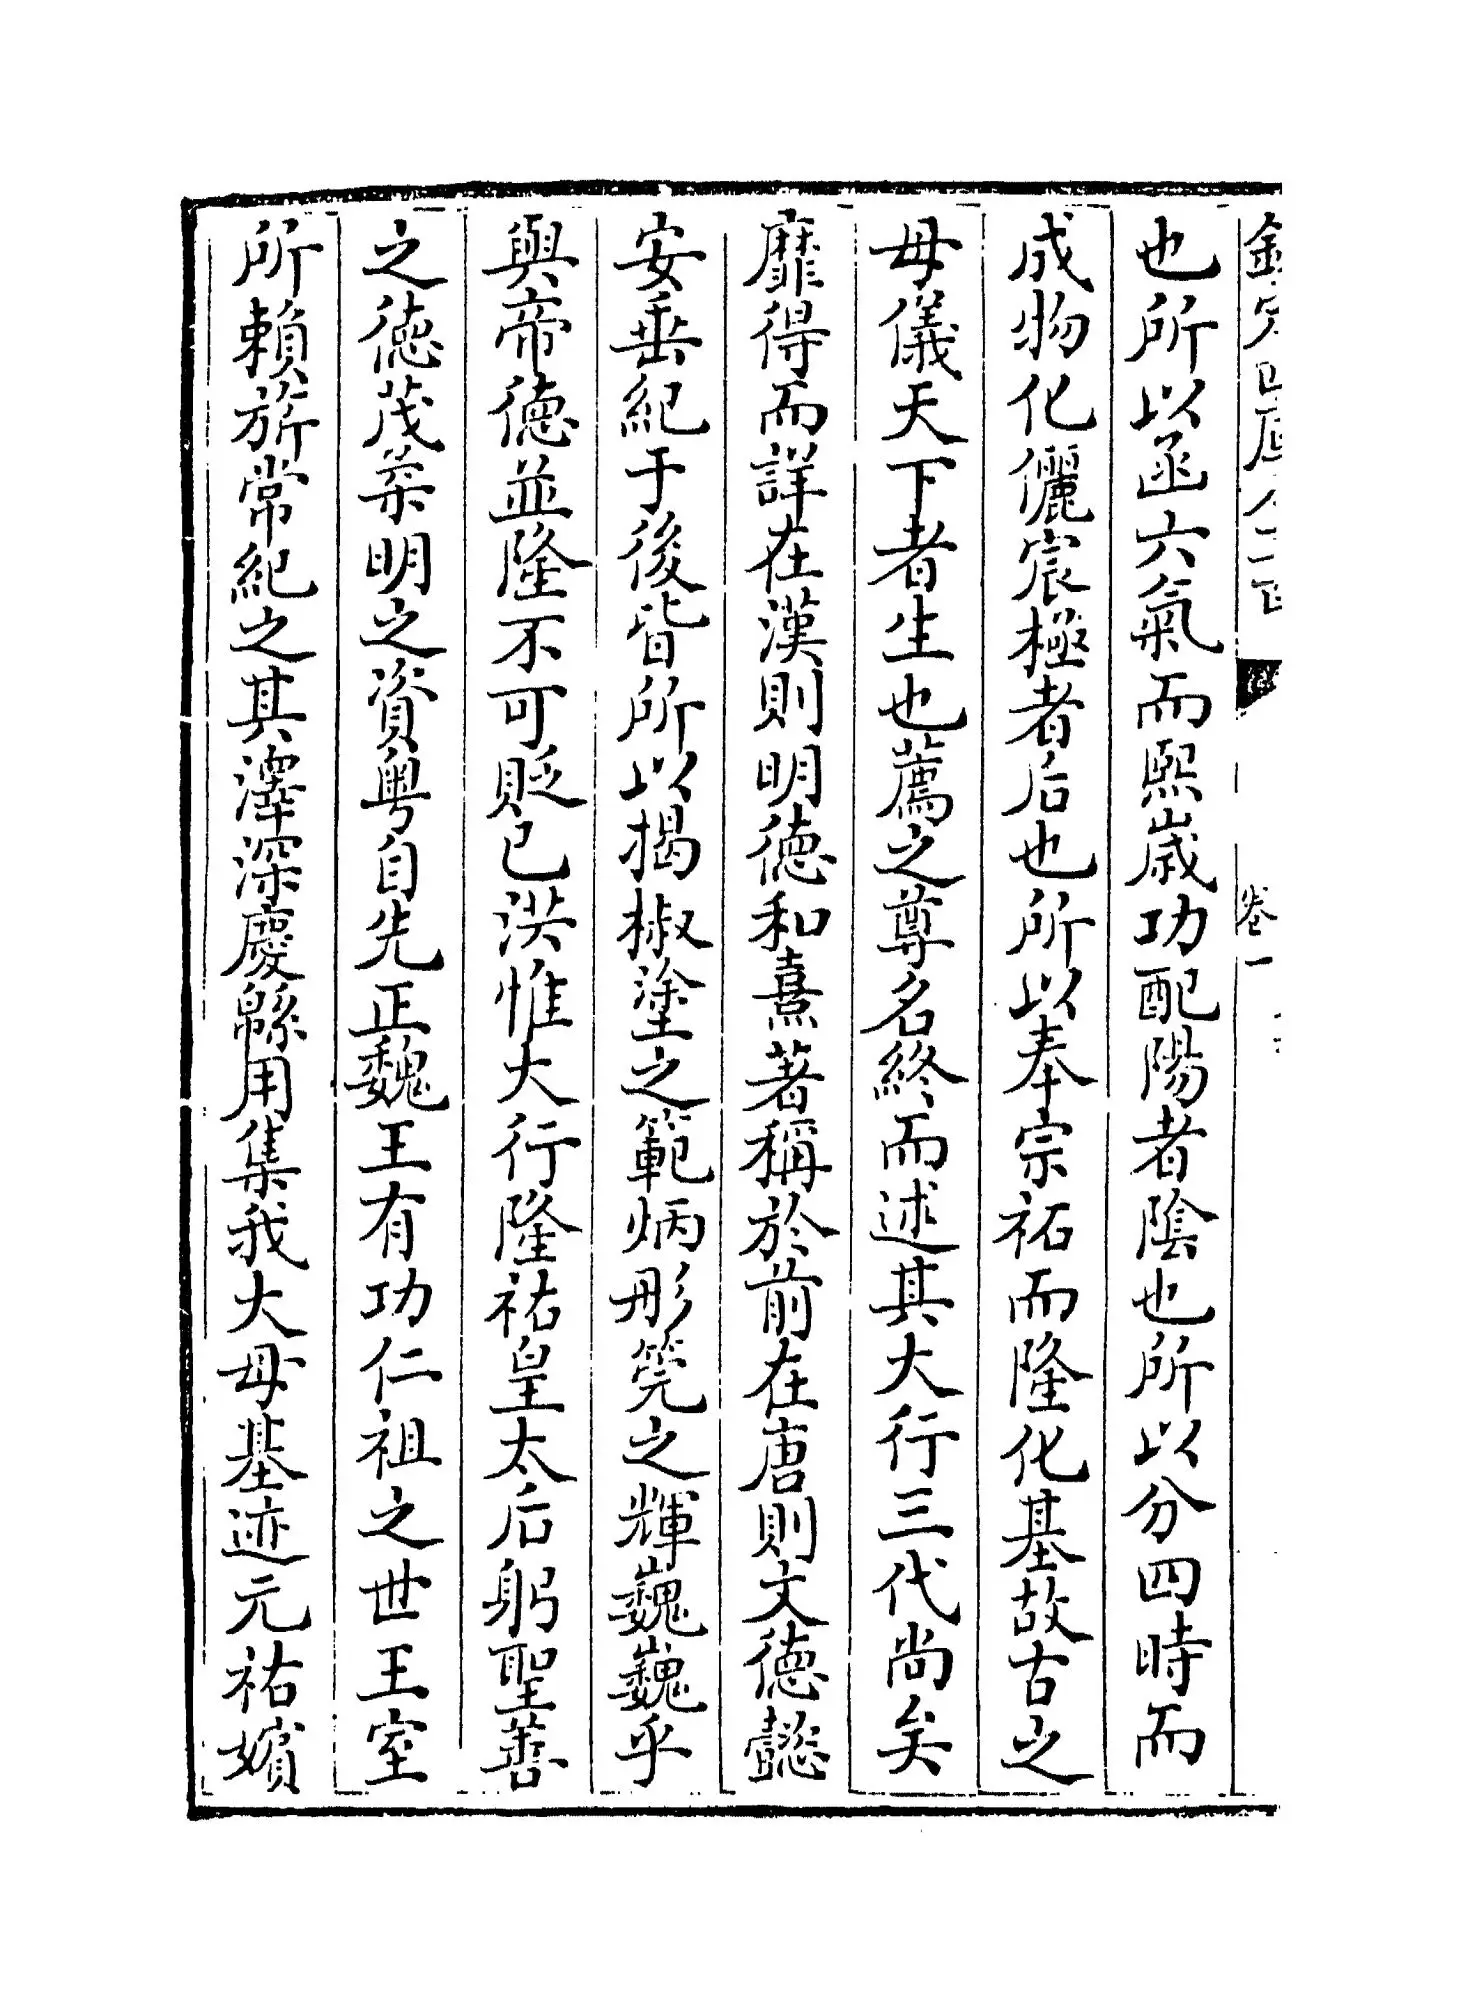 欽定四庫全書
卷一
也所以函六氣而熙嵗功配陽者陰也所以分四時而
成物化儷宸極者后也所以奉宗祏而隆化基故古之
母儀天下者生也薦之尊名終而述其大行三代尚矣
靡得而詳在漢則明徳和熹著稱於前在唐則文徳懿
安垂紀于後皆所以揭椒塗之範炳彤筦之輝巍巍乎
與帝徳並隆不可貶已洪惟大行隆祐皇太后躬聖善
之徳茂柔明之資粤自先正魏王有功仁祖之世王室
所賴旂常紀之其澤深慶緜用集我大母基迹元祐嬪